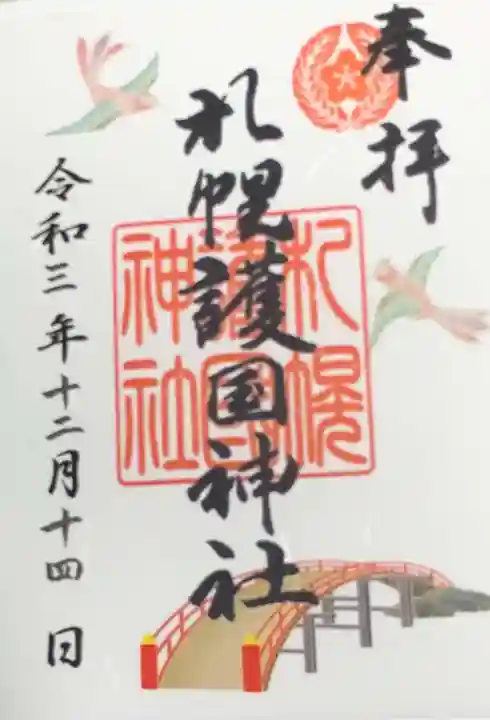 奉拝
札幌護国神社
札幌
護国
神社
令和三年十二月十四日